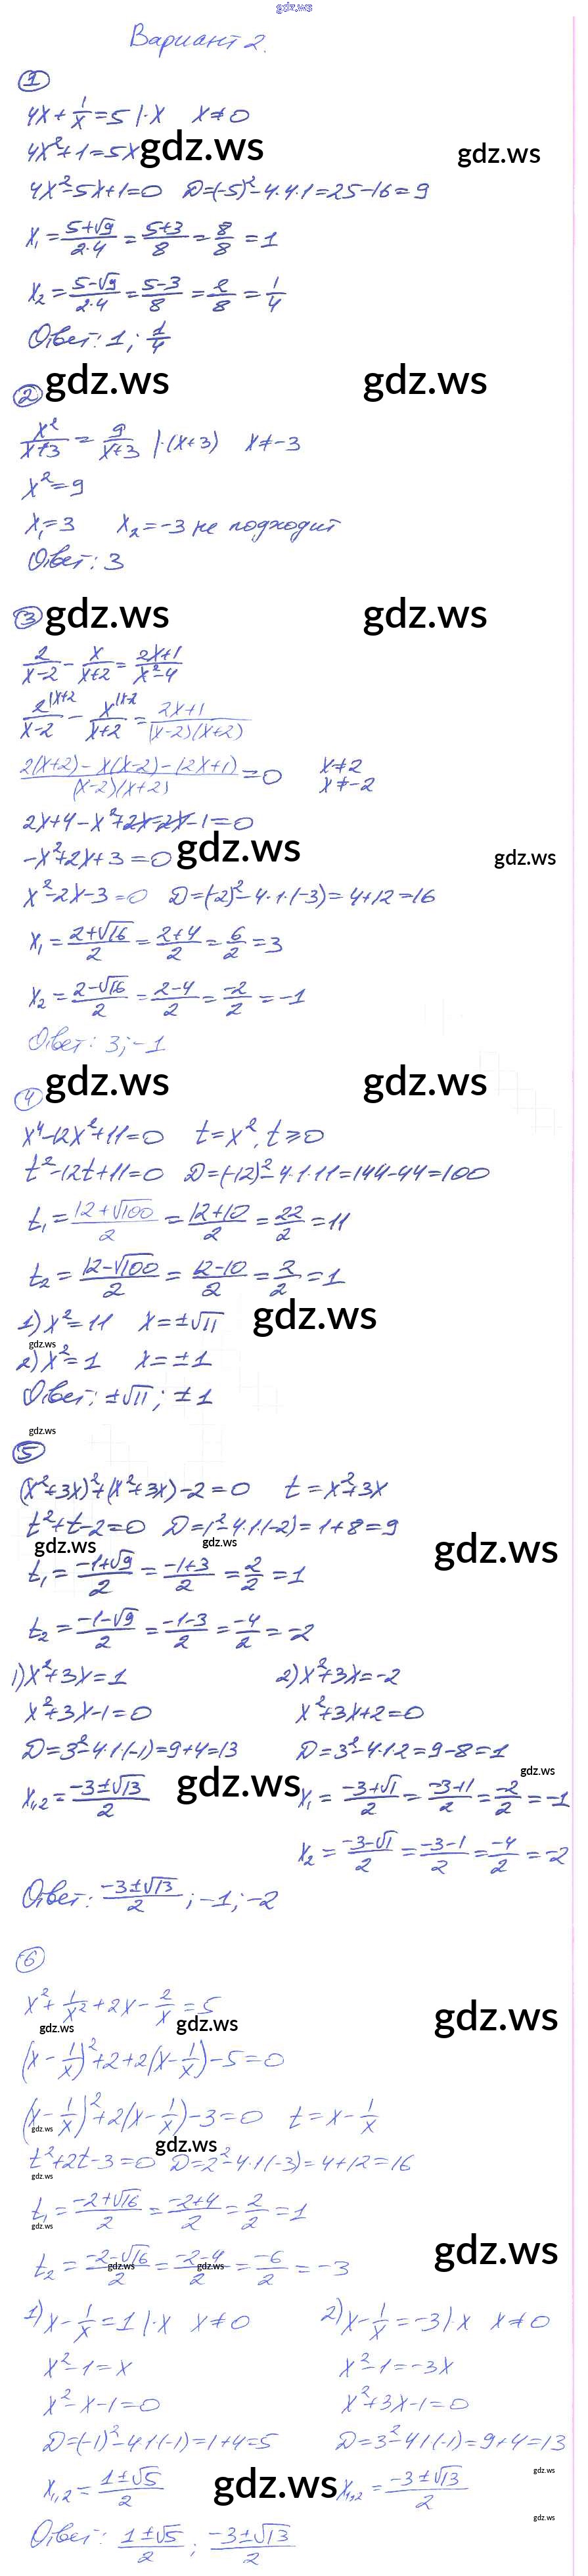 gdz.ws
Вариант 2.
1
4x + 1/x = 5 |·x   x ≠ 0
4x² + 1 = 5x gdz.ws gdz.ws
4x² - 5x + 1 = 0   D = (-5)² - 4·4·1 = 25 - 16 = 9
x₁ = (5+√9)/(2·4) = (5+3)/8 = 8/8 = 1
x₂ = (5-√9)/(2·4) = (5-3)/8 = 2/8 = 1/4
Ответ: 1; 1/4
2 gdz.ws gdz.ws
x²/(x+3) = 9/(x+3) |·(x+3)   x ≠ -3
x² = 9
x₁ = 3   x₂ = -3 не подходит
Ответ: 3
3 gdz.ws gdz.ws
2/(x-2) - x/(x+2) = (2x+1)/(x²-4)
2^{|x+2}/(x-2) - x^{|x-2}/(x+2) = (2x+1)/((x-2)(x+2))
(2(x+2) - x(x-2) - (2x+1))/((x-2)(x+2)) = 0   x ≠ 2   x ≠ -2
2x + 4 - x² + 2x - 2x - 1 = 0
-x² + 2x + 3 = 0 gdz.ws gdz.ws
x² - 2x - 3 = 0   D = (-2)² - 4·1·(-3) = 4 + 12 = 16
x₁ = (2+√16)/2 = (2+4)/2 = 6/2 = 3
x₂ = (2-√16)/2 = (2-4)/2 = -2/2 = -1
Ответ: 3; -1
4 gdz.ws gdz.ws
x⁴ - 12x² + 11 = 0   t = x², t ≥ 0
t² - 12t + 11 = 0   D = (-12)² - 4·1·11 = 144 - 44 = 100
t₁ = (12+√100)/2 = (12+10)/2 = 22/2 = 11
t₂ = (12-√100)/2 = (12-10)/2 = 2/2 = 1
1) x² = 11   x = ±√11 gdz.ws
gdz.ws
2) x² = 1   x = ±1
Ответ: ±√11; ±1
gdz.ws
5
(x²+3x)² + (x²+3x) - 2 = 0   t = x² + 3x
t² + t - 2 = 0   D = 1² - 4·1·(-2) = 1 + 8 = 9
gdz.ws gdz.ws gdz.ws
t₁ = (-1+√9)/2 = (-1+3)/2 = 2/2 = 1
t₂ = (-1-√9)/2 = (-1-3)/2 = -4/2 = -2
1) x² + 3x = 1   2) x² + 3x = -2
x² + 3x - 1 = 0   x² + 3x + 2 = 0
D = 3² - 4·1·(-1) = 9 + 4 = 13   D = 3² - 4·1·2 = 9 - 8 = 1
gdz.ws gdz.ws
x₁,₂ = (-3±√13)/2   x₁ = (-3+√1)/2 = (-3+1)/2 = -2/2 = -1
x₂ = (-3-√1)/2 = (-3-1)/2 = -4/2 = -2
Ответ: (-3±√13)/2; -1; -2
6
x² + 1/x² + 2x - 2/x = 5 gdz.ws
gdz.ws gdz.ws
(x - 1/x)² + 2 + 2(x - 1/x) - 5 = 0
(x - 1/x)² + 2(x - 1/x) - 3 = 0   t = x - 1/x
gdz.ws gdz.ws
t² + 2t - 3 = 0   D = 2² - 4·1·(-3) = 4 + 12 = 16
gdz.ws
t₁ = (-2+√16)/2 = (-2+4)/2 = 2/2 = 1
gdz.ws gdz.ws
t₂ = (-2-√16)/2 = (-2-4)/2 = -6/2 = -3
gdz.ws gdz.ws
1) x - 1/x = 1 |·x   x ≠ 0   2) x - 1/x = -3 |·x   x ≠ 0
x² - 1 = x   x² - 1 = -3x
x² - x - 1 = 0   x² + 3x - 1 = 0
D = (-1)² - 4·1·(-1) = 1 + 4 = 5   D = 3² - 4·1·(-1) = 9 + 4 = 13
x₁,₂ = (1±√5)/2 gdz.ws x₁,₂ = (-3±√13)/2 gdz.ws
gdz.ws
Ответ: (1±√5)/2; (-3±√13)/2